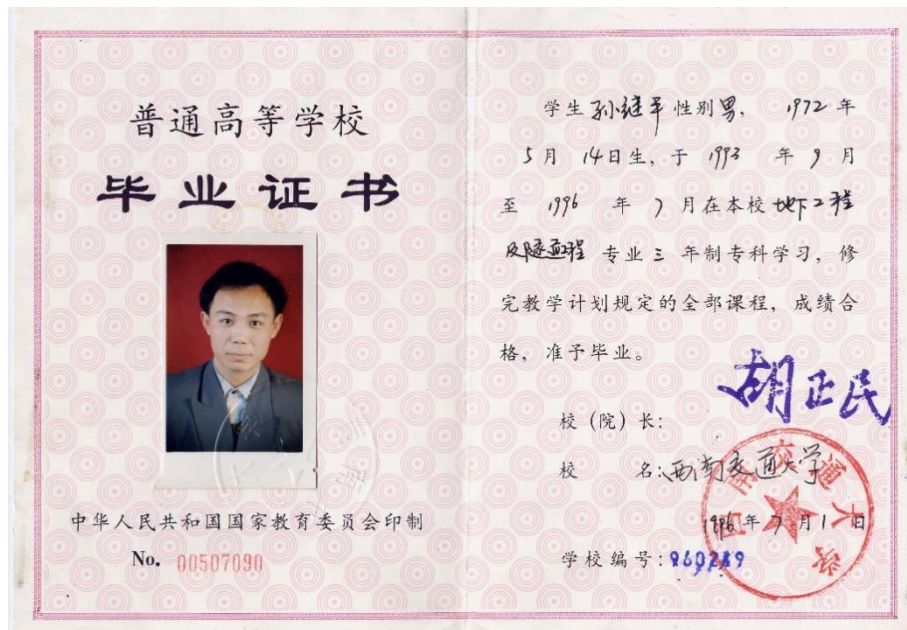 普通高等学校
毕业证书
中华人民共和国国家教育委员会印制
No. 00507090
学生孙继平性别男, 1972年
5月14日生, 于1993年9月
至1996年7月在本校地下工程
及隧道工程专业三年制专科学习, 修
完教学计划规定的全部课程, 成绩合
格, 准予毕业。
胡正民
校(院)长:
校名:西南交通大学
1996年7月1日
学校编号:960289
西南交通大学